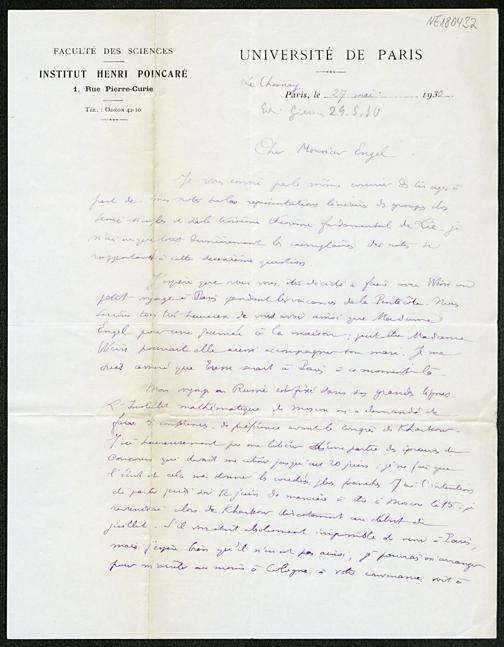 NE180432
FACULTÉ DES SCIENCES
INSTITUT HENRI POINCARÉ
1, Rue Pierre-Curie
TÉL. : ODÉON 42-10
UNIVERSITÉ DE PARIS
Le Chesnay
Paris, le 27 mai 1930
29.5.30
Cher Monsieur Engel
Je vous envoie par le même courrier des tirages à
part de mes notes sur les représentations linéaires de groupes clos
et de le troisième théorème fondamental de Lie. Je
n'ai reçu que tout dernièrement les exemplaires des notes se
rapportant à cette deuxième question.
J'espère que vous vous êtes décidé à faire avec Weiss un
petit voyage à Paris pendant les vacances de la Pentecôte. Nous
serions tous très heureux de vous avoir ainsi que Madame
Engel pour une journée à la maison; peut-être Madame
Weiss pourrait elle aussi accompagner son mari. Je me
suis que serait à Paris à ce moment-là.
Mon voyage en Russie est fixé dans ses grandes lignes.
L'Institut mathématique de Moscou m'a demandé de
faire conférences, de préférence avant le Congrès de Kharkow.
J'ai heureusement pu me libérer d'une partie des épreuves du
Concours qui devait me tenir jusqu'au 20 juin; je ne fais que
l'écrit et cela me donne les coudées plus franches. J'ai l'intention
de partir jeudi soir 12 juin de manière à être à Moscou le 15; je
reviendrai alors de Kharkow directement au début de
juillet. S'il vous était absolument impossible de venir à Paris,
mais j'espère bien qu'il n'en est pas ainsi, je pourrais m'arranger
pour m'arrêter au moins à Cologne, à votre convenance, soit à